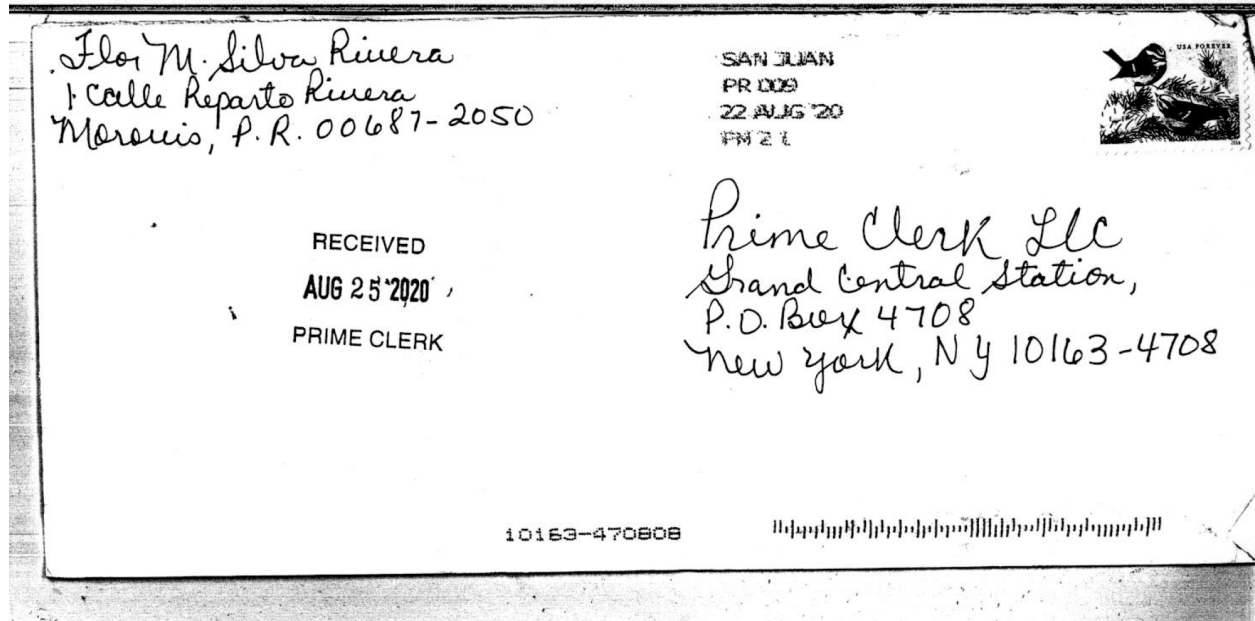 Flor M. Silva Rivera
1 Calle Reparto Rivera
Morovis, P.R. 00687-2050
SAN JUAN
PR 009
22 AUG '20
PM 2 L
USA FOREVER
RECEIVED
AUG 25 2020
PRIME CLERK
Prime Clerk LLC
Grand Central Station,
P.O. Box 4708
New York, NY 10163-4708
10163-470808